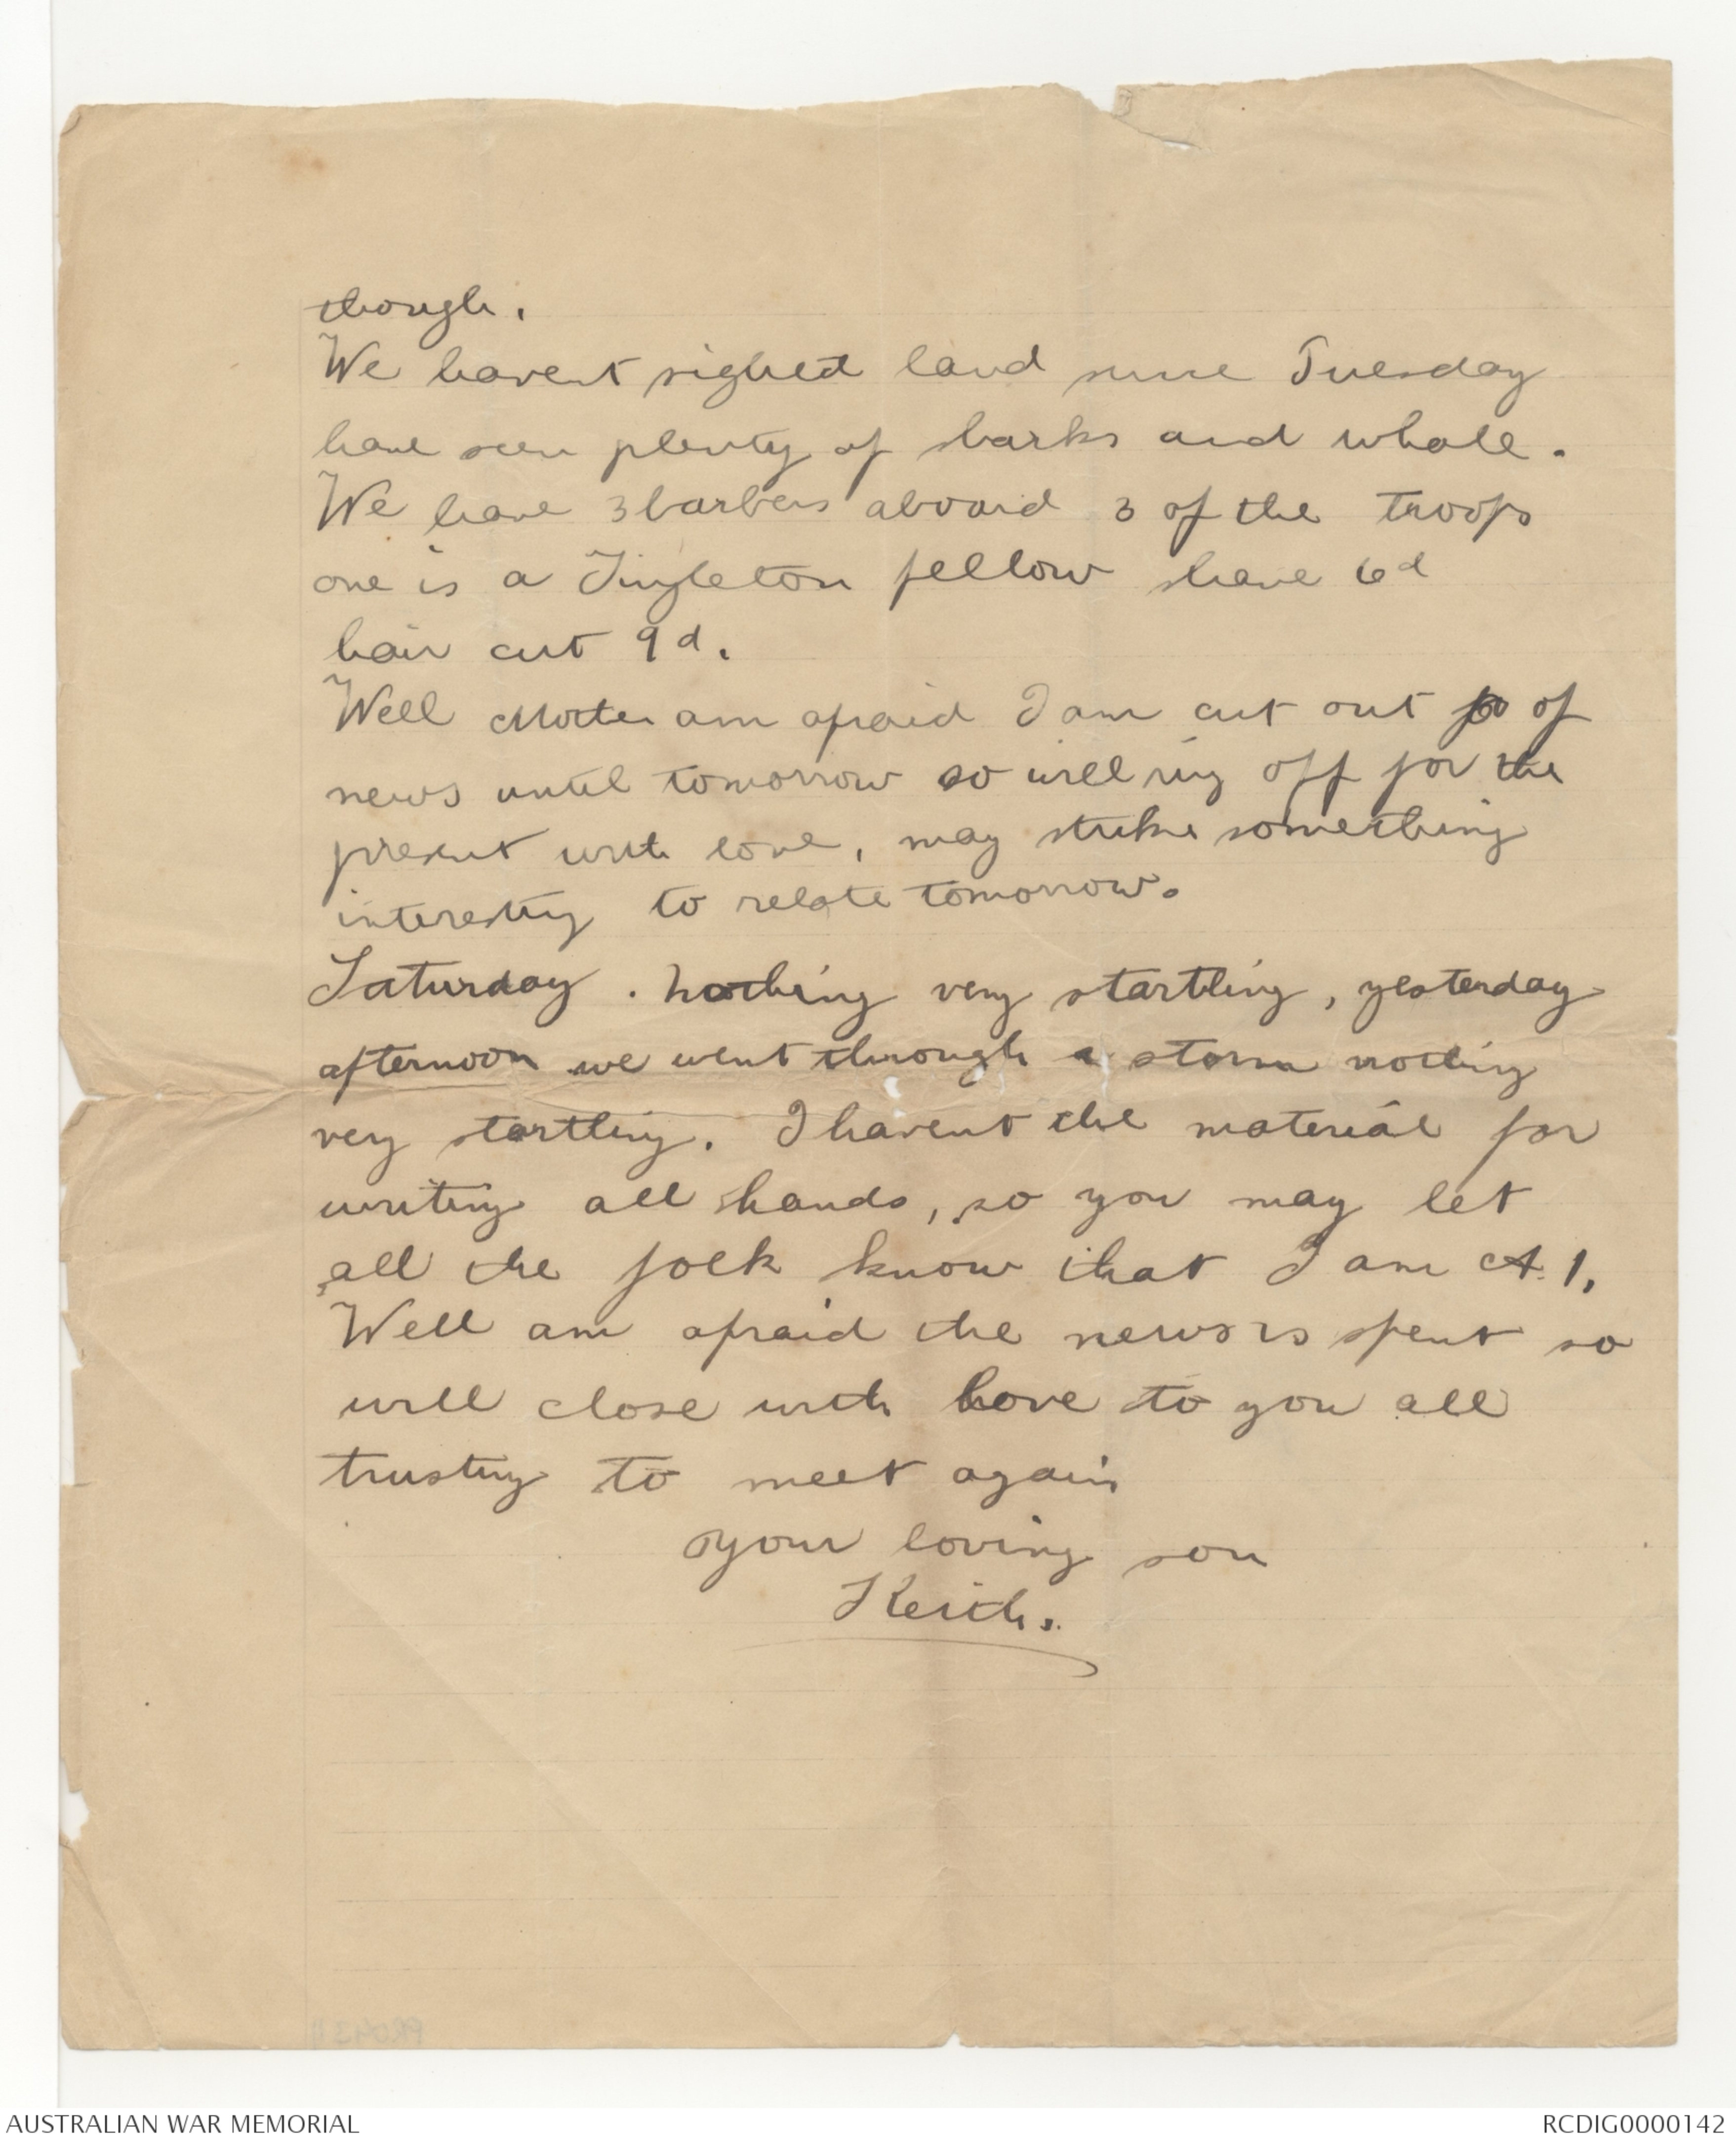 though.
We havent sighted land since Tuesday
have seen plenty of sharks and whale.
We have 3 barbers aboard 3 of the troops
one is a Singleton fellow shave 6d
hair cut 9d.
Well Mother am afraid I am cut out of
news until tomorrow so will ring off for the
present with love, may strike something
interesting to relate tomorrow.
Saturday. Nothing very startling, yesterday
afternoon we went through a storm nothing
very startling. I havent the material for
writing all hands, so you may let
all the folk know that I am A.1.
Well am afraid the news is spent so
will close with love to you all
trusting to meet again
your loving son
Keith.
AUSTRALIAN WAR MEMORIAL
RCDIG0000142